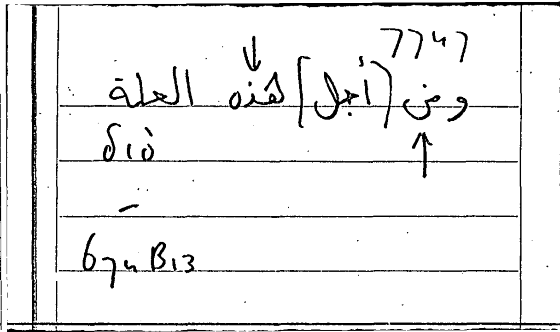 7747
ومن [أجل] هذه العلة
διό
–
674 B13